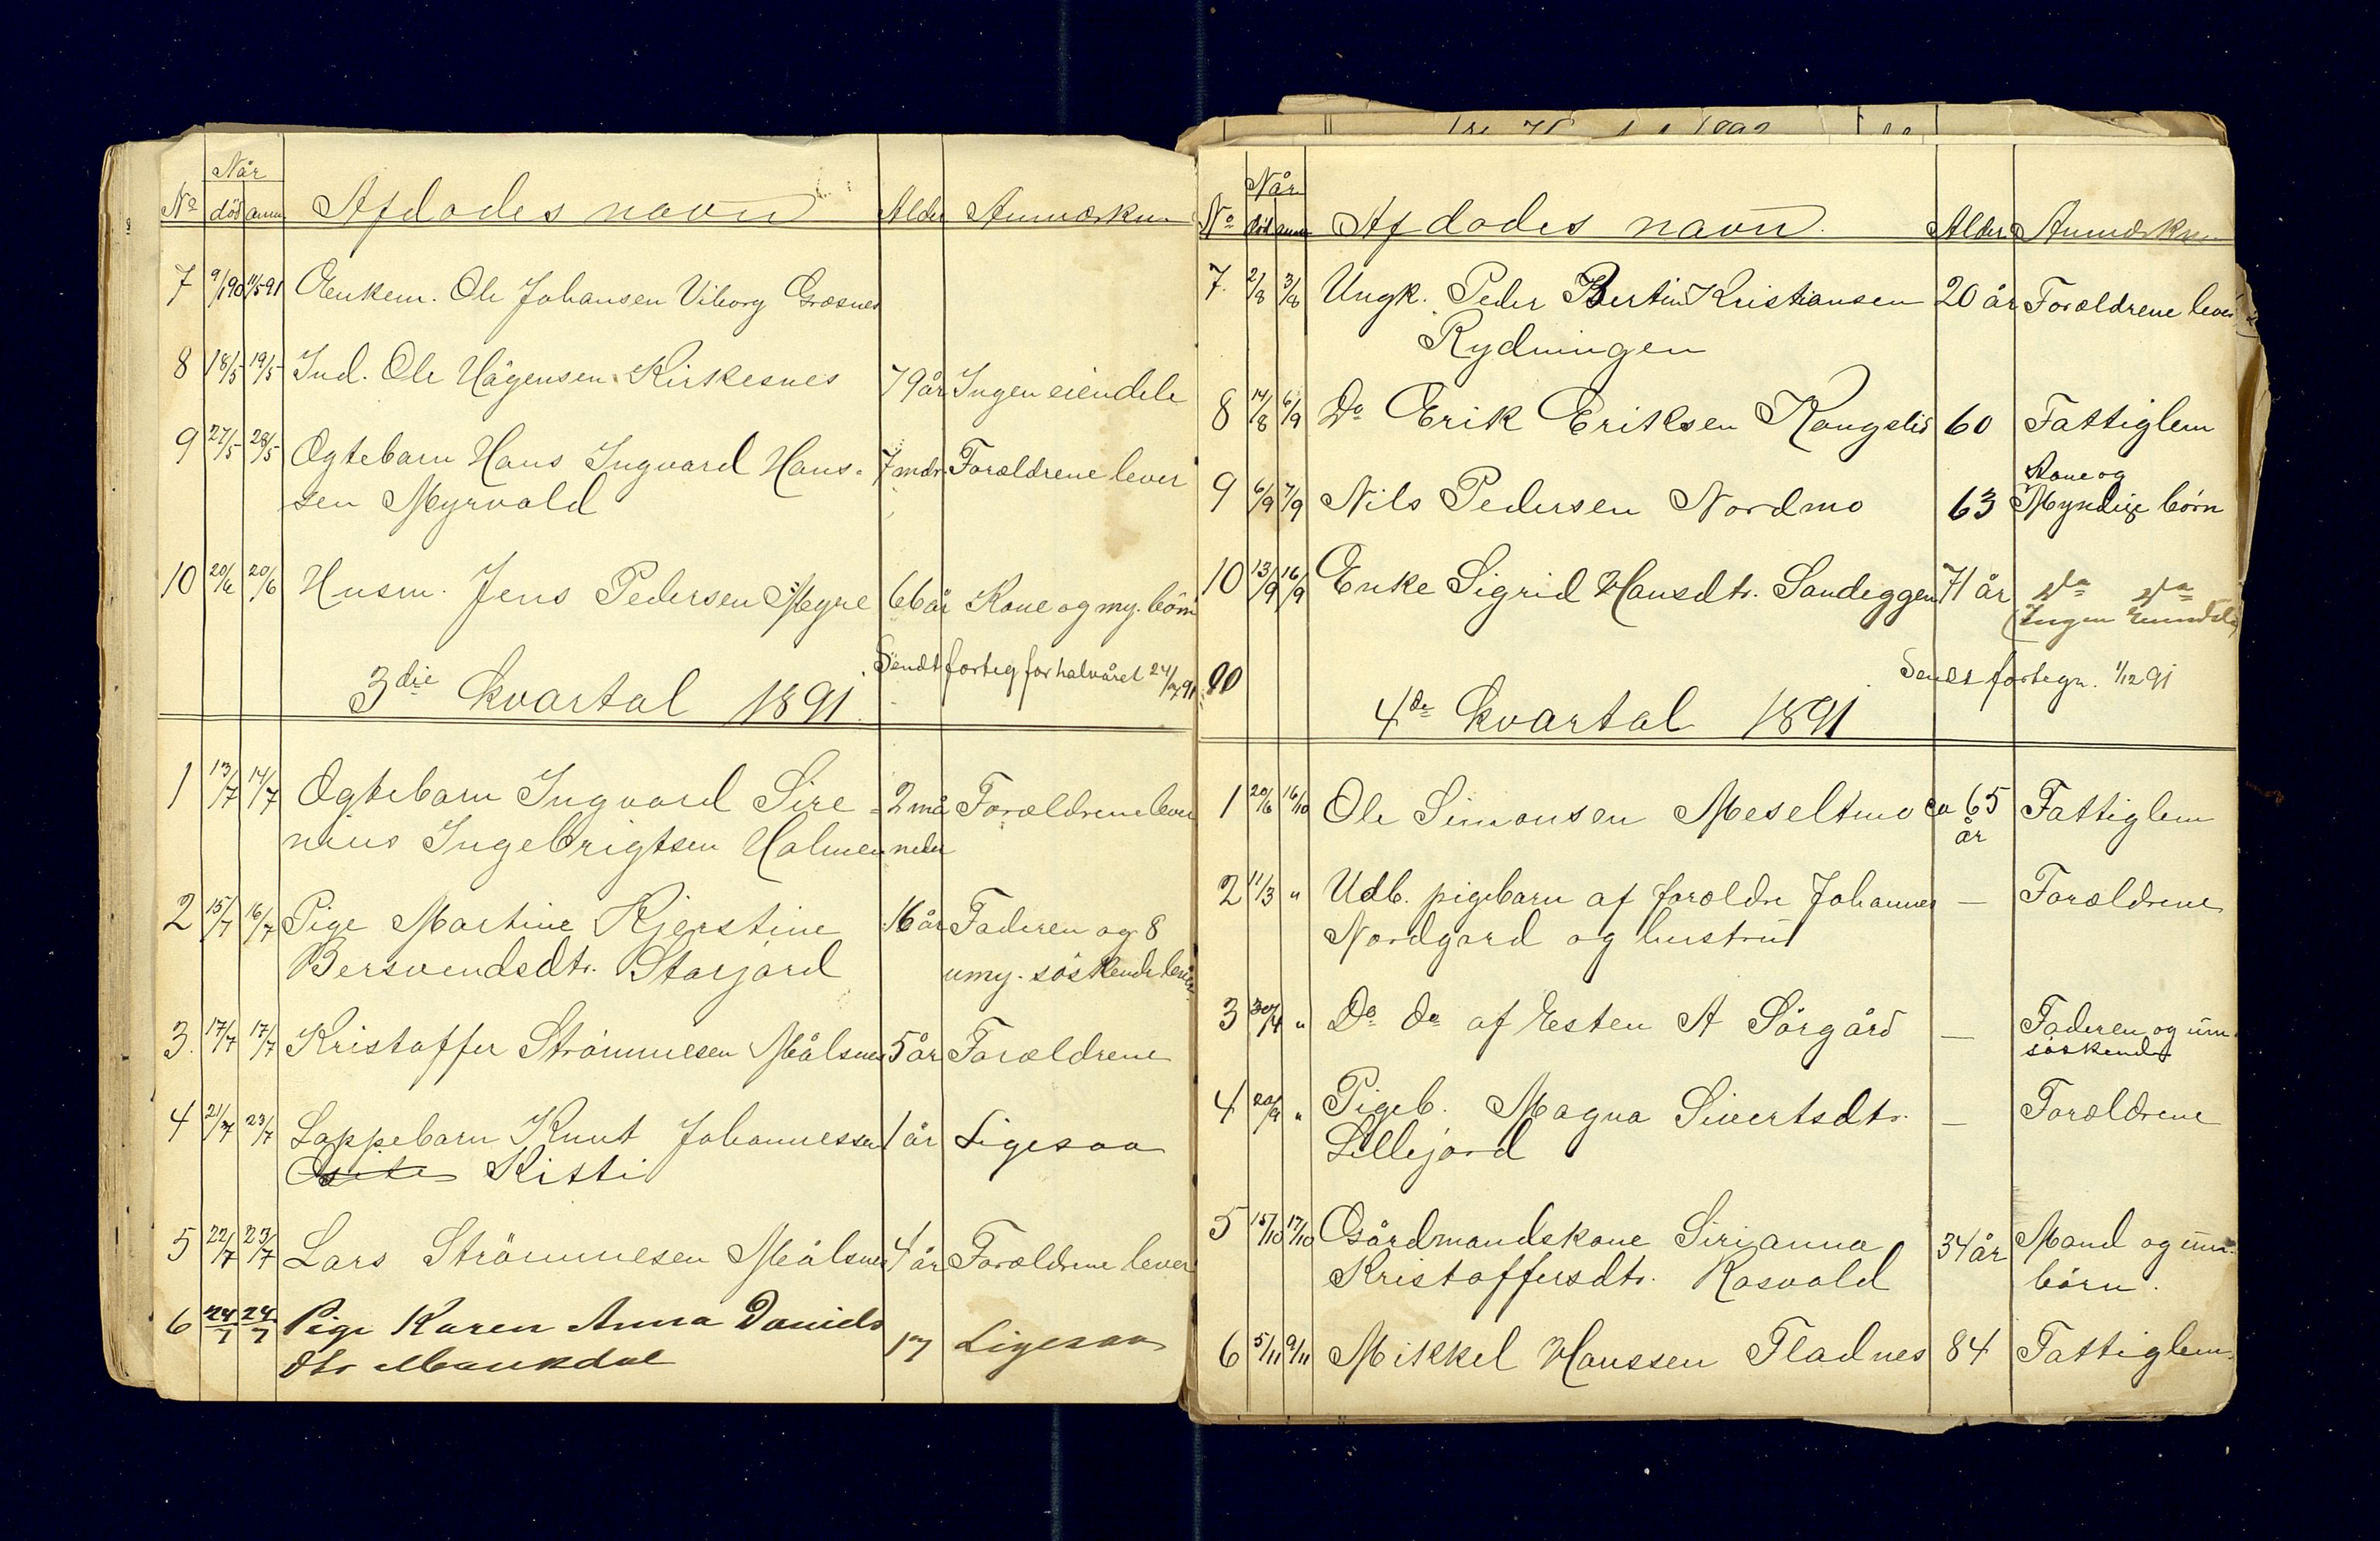 Når
No død anm Afdødes navn Alder Anmærkn
7 9/1 90 11/5 91 Enkem. Ole Johansen Viborg Græsnes
8 18/5 19/5 Ind. Ole Hågensen Kirkesnes 79 år Ingen eiendele
9 27/5 28/5 Ægtebarn Hans Ingvard Hans- 7 mdr. Forældrene lever
sen Myrvold
10 20/6 20/6 Husm. Jens Pedersen Myre 66 år Kone og my. börn
Sendt forteg for halvåret 24/7 91
3die kvartal 1891.
1 13/7 14/7 Ægtebarn Ingvard Sire- 2 må Forældrene lever
nius Ingebrigtsen Holmen neder
2 15/7 16/7 Pige Martine Kjerstine 16 år Faderen og 8
Bersvendsdtr. Storjord umy. söskende lever
3. 17/7 17/7 Kristoffer Strömmesen Målsnes 5 år Forældrene
4 21/7 23/7 Lappebarn Knut Johannessen 1 år Ligesaa
Kitti
5 22/7 23/7 Lars Strömmesen Målsnes 4 år Forældrene lever
6 24/7 24/7 Pige Karen Anna Daniels
dtr Maukdal 17 Ligesaa
Når
No död anm Afdødes navn. Alder Anmærkn
7. 2/8 3/8 Ungk. Peder Bertin Kristiansen 20 år Forældrene lever
Rydningen
8 14/8 6/9 Do Erik Eriksen Kongslid 60 Fattiglem
Kone og
9 6/9 7/9 Nils Pedersen Nordmo 63 Myndige börn
10 13/9 16/9 Enke Sigrid Hansdtr. Sandeggen 71 år Do Do
(Ingen Eiendele)
Sendt fortegn. 1/12 91
4de kvartal 1891
1 20/6 16/10 Ole Simonsen Meseltmo ca 65 Fattiglem
år
2 11/3 " Udb. pigebarn af forældre Johannes — Forældrene
Nordgård og hustru
3 30/4 " Do do af Esten A Sörgård — Faderen og um.
söskende
4 20/9 " Pigeb. Magna Sivertsdtr. — Forældrene
Lillejord
5 15/10 17/10 Gårdmandskone Sirianna 34 år Mand og um.
Kristoffersdtr. Rosvold börn.
6 5/11 9/11 Mikkel Hanssen Fladnes 84 Fattiglem.